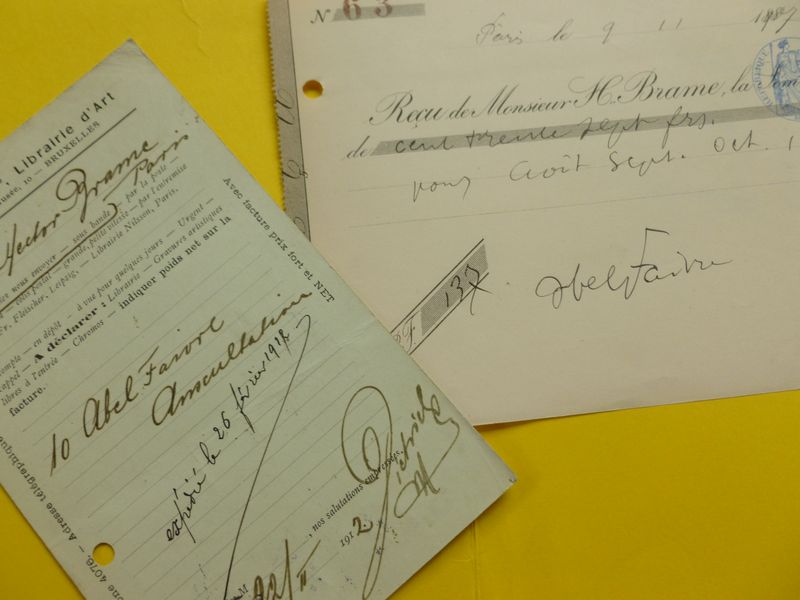 N 63
Paris le 9 11
Reçu de Monsieur H. Brame, la
de cent trente sept frs.
pour Août Sept. Oct.
F. 137
Abel Faivre
Librairie d'Art
10 — BRUXELLES
Hector Brame
Paris
nous envoyer — sous bande — par la poste —
colis postal — grande, petite vitesse — par l'entremise
Fr. Fleischer, Leipzig, — Librairie Nilsson, Paris.
en dépôt — à vue pour quelques jours — Urgent —
A déclarer : Librairie — Gravures artistiques
libres à l'entrée — Chromos — indiquer poids net sur la
facture.
Avec facture prix fort et NET
10 Abel Faivre
Auscultation
expédié le 26 février 1912
, nos salutations empressées.
22/II 1912
one 4076. — Adresse télégraphique